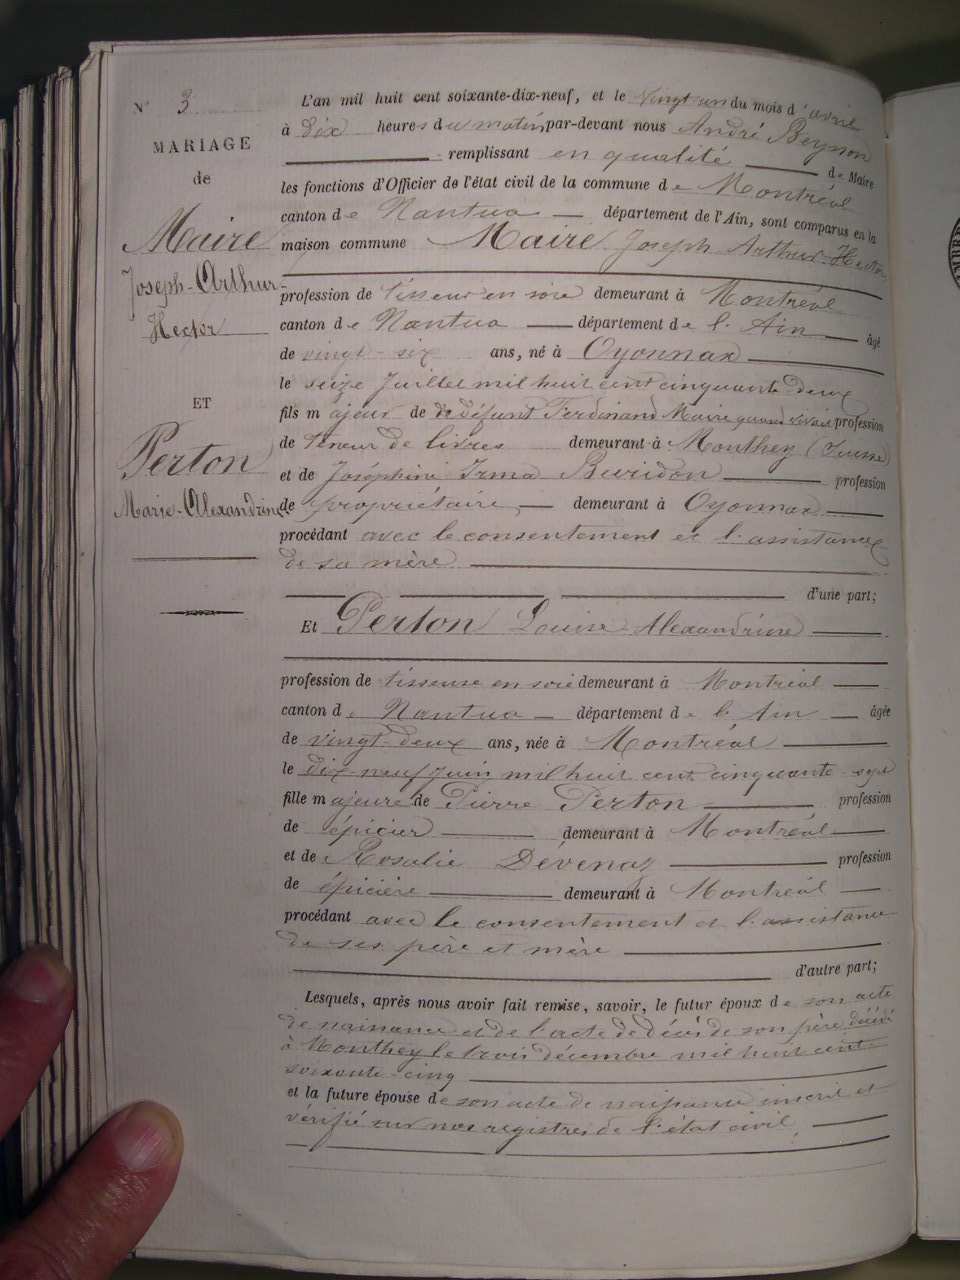 N° 3
MARIAGE
de
Maire
Joseph-Arthur-
Hector
ET
Perton
Marie-Alexandrine
L'an mil huit cent soixante-dix-neuf, et le vingt un du mois d'avril
à dix heures du matin, par-devant nous André Beysson
remplissant en qualité de Maire
les fonctions d'Officier de l'état civil de la commune de Montréal
canton de Nantua département de l'Ain, sont comparus en la
maison commune Maire Joseph Arthur Hector
profession de tisseur en soie demeurant à Montréal
canton de Nantua département de l'Ain âgé
de vingt-six ans, né à Oyonnax
le seize Juillet mil huit cent cinquante deux
fils majeur de défunt Ferdinand Maire quand vivait profession
de teneur de livres demeurant à Monthey (Suisse)
et de Joséphine Irma Buridon profession
de propriétaire demeurant à Oyonnax
procédant avec le consentement et l'assistance
de sa mère
d'une part;
Et Perton Louise-Alexandrine
profession de tisseuse en soie demeurant à Montréal
canton de Nantua département de l'Ain âgée
de vingt-deux ans, née à Montréal
le dix-neuf juin mil huit cent cinquante-sept
fille majeure de Pierre Perton profession
de épicier demeurant à Montréal
et de Rosalie Dévenaz profession
de épicière demeurant à Montréal
procédant avec le consentement et l'assistance
de ses père et mère
d'autre part;
Lesquels, après nous avoir fait remise, savoir, le futur époux de son acte
de naissance et de l'acte de décès de son père décédé
à Monthey le trois décembre mil huit cent
soixante-cinq
et la future épouse de son acte de naissance inscrit et
vérifié sur nos registres de l'état civil,